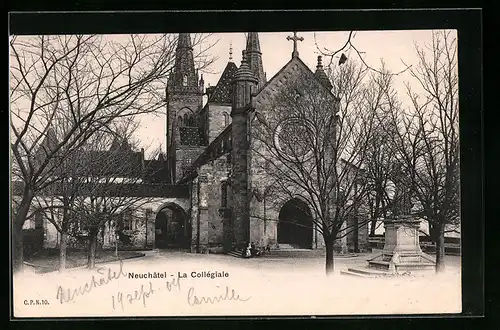 Neuchâtel - La Collégiale
C.P.N. 10.
Neuchâtel
19 sept. 04 Camille